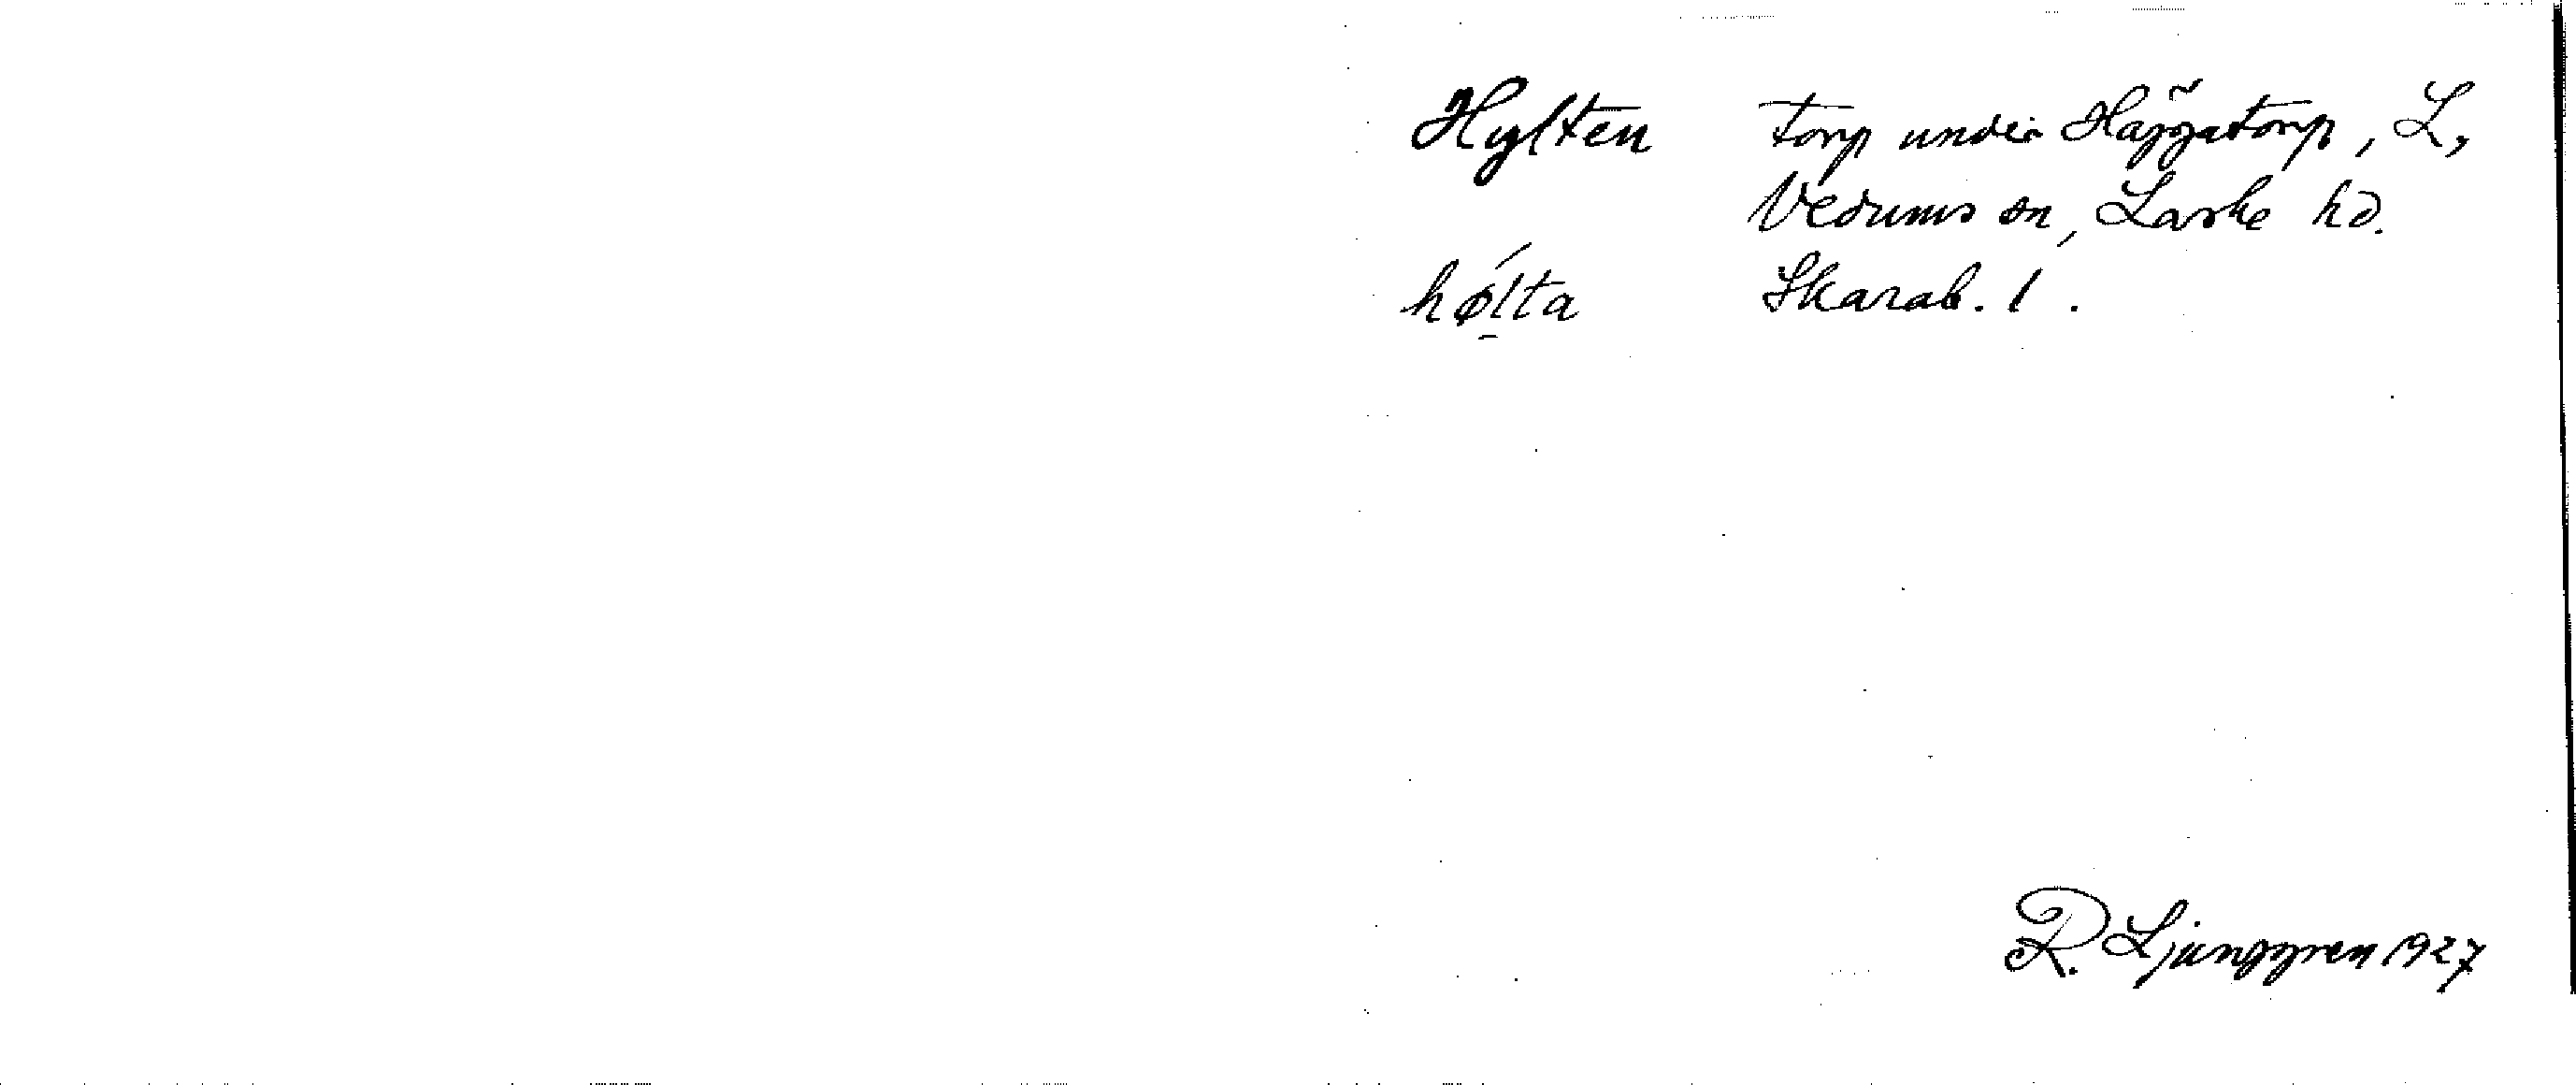 Hylten torp under Häggatorp, L,
Vedums sn, Laske hd.
hǿ̱lta Skarab. l.
R. Ljunggren 1927